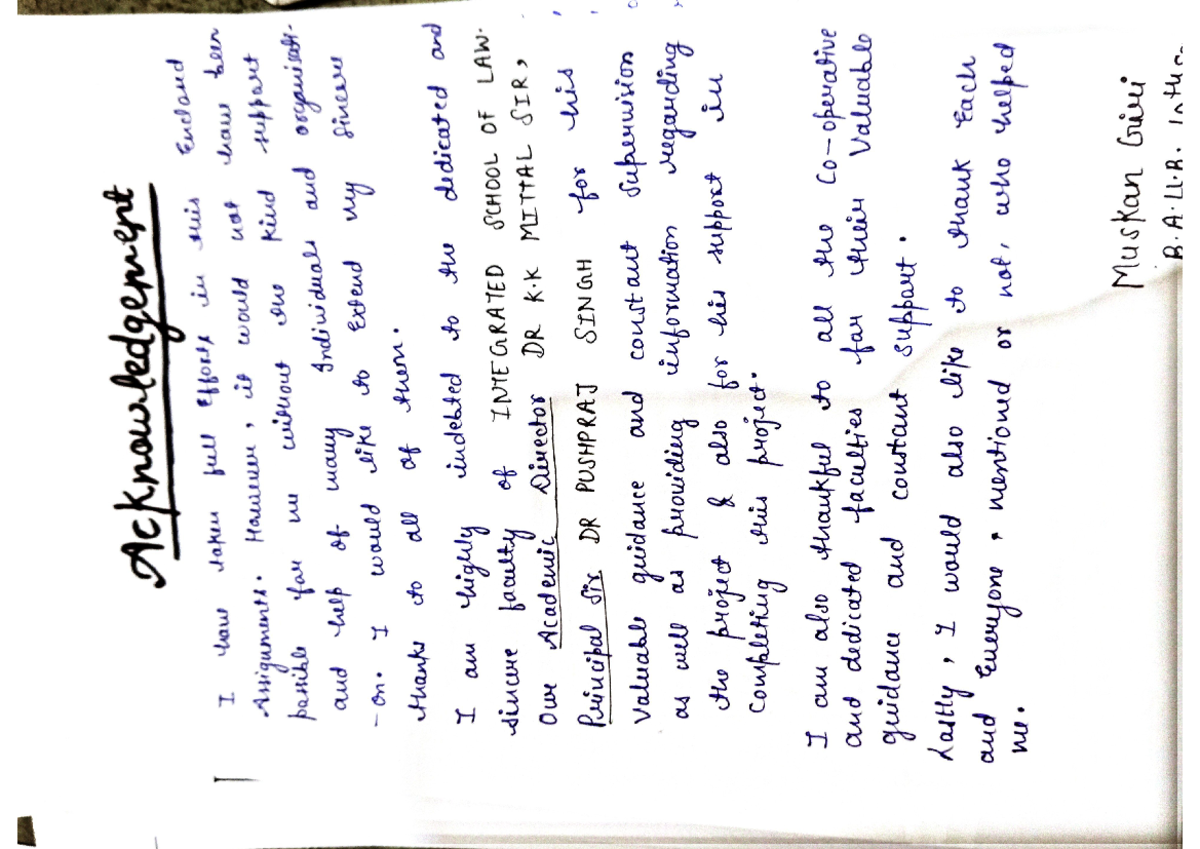 Acknowledgement
I have taken full efforts in this Encland
Assignments. However, it would not have been
possible for me without the kind support
and help of many Individuals and organisati-
-on. I would like to extend my sincere
thanks to all of them.
I am highly indebted to the dedicated and
sincere faculty of INTEGRATED SCHOOL OF LAW.
Our Academic Director DR K.K MITTAL SIR,
Principal Sir DR PUSHPRAJ SINGH for his
Valuable guidance and constant supervision
as well as providing information regarding
the project & also for his support in
Completing this project.
I am also thankful to all the Co-operative
and dedicated faculties for their Valuable
guidance and constant support.
Lastly, I would also like to thank Each
and Everyone, mentioned or not, who helped
me.
Muskan Giri
B.A.LL.B.